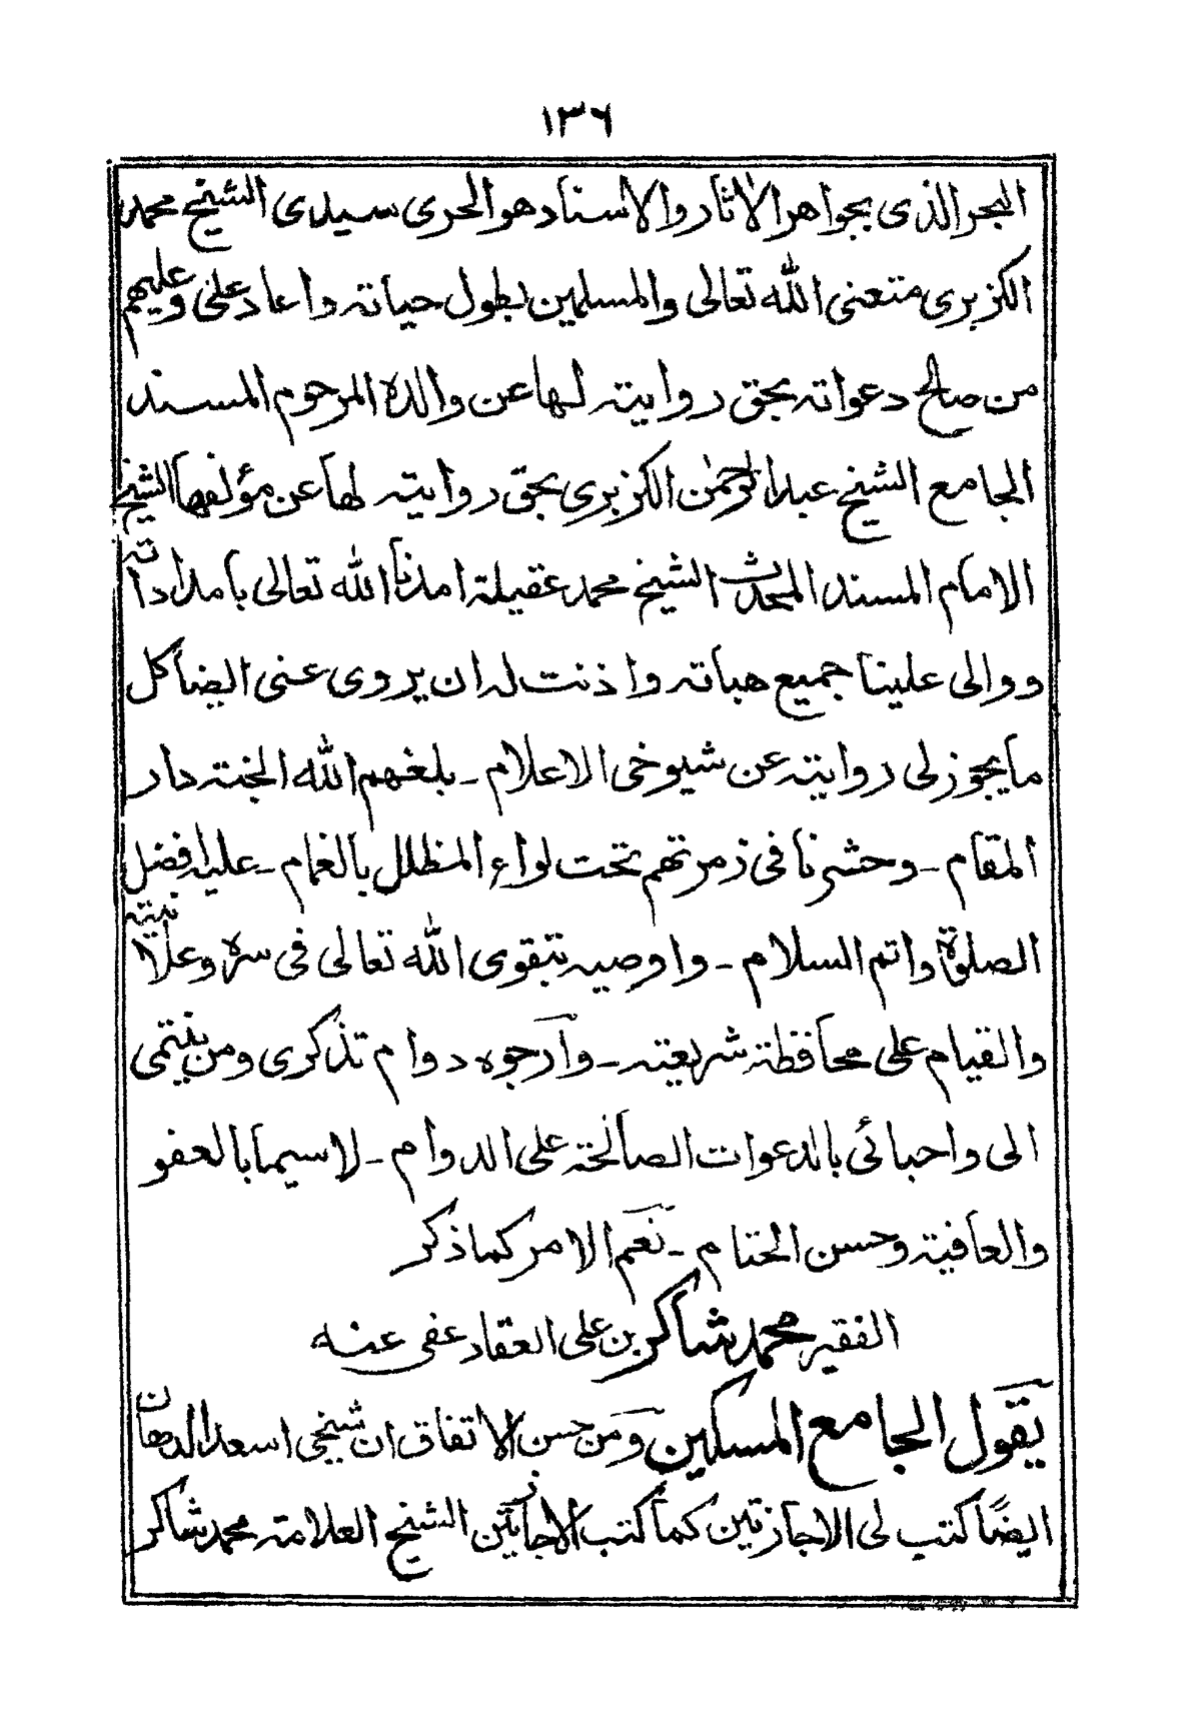 ١٣٦
البحر الذى بجواهر الاٰثار والاسناد هو الحرى سيدى الشيخ محمد
الكزبرى متعنى الله تعالى والمسلمين بطول حياته واعاد على وعليهم
من صالح دعواته بحق روايته لها عن والده المرحوم المسند
الجامع الشيخ عبدالرحمٰن الكزبرى بحق روايته لها عن مؤلفها الشيخ
الامام المسند المحدث الشيخ محمد عقيلة امدنا الله تعالى بامداداته
ووالى علينا جميع هباته واذنت له ان يروى عنى ايضا كل
ما يجوز لى روايته عن شيوخى الاعلام - بلغهم الله الجنة دار
المقام - وحشرنا فى زمرتهم تحت لواء المظلل بالغمام - عليه افضل
الصلوة واتم السلام - واوصيه بتقوى الله تعالى فى سره وعلانيته
والقيام على محافظة شريعته - وارجوه دوام تذكرى ومن ينتمى
الى واحبائى بالدعوات الصالحة على الدوام - لاسيما بالعفو
والعافية وحسن الختام - نعم الامر كما ذكر
الفقير محمد شاكر بن على العقاد عفى عنه
يقول الجامع المسكين ومن حسن الاتفاق ان شيخى اسعد الدهان
ايضًا كتب لى الاجازتين كما كتب الاجازتين الشيخ العلامة محمد شاكر